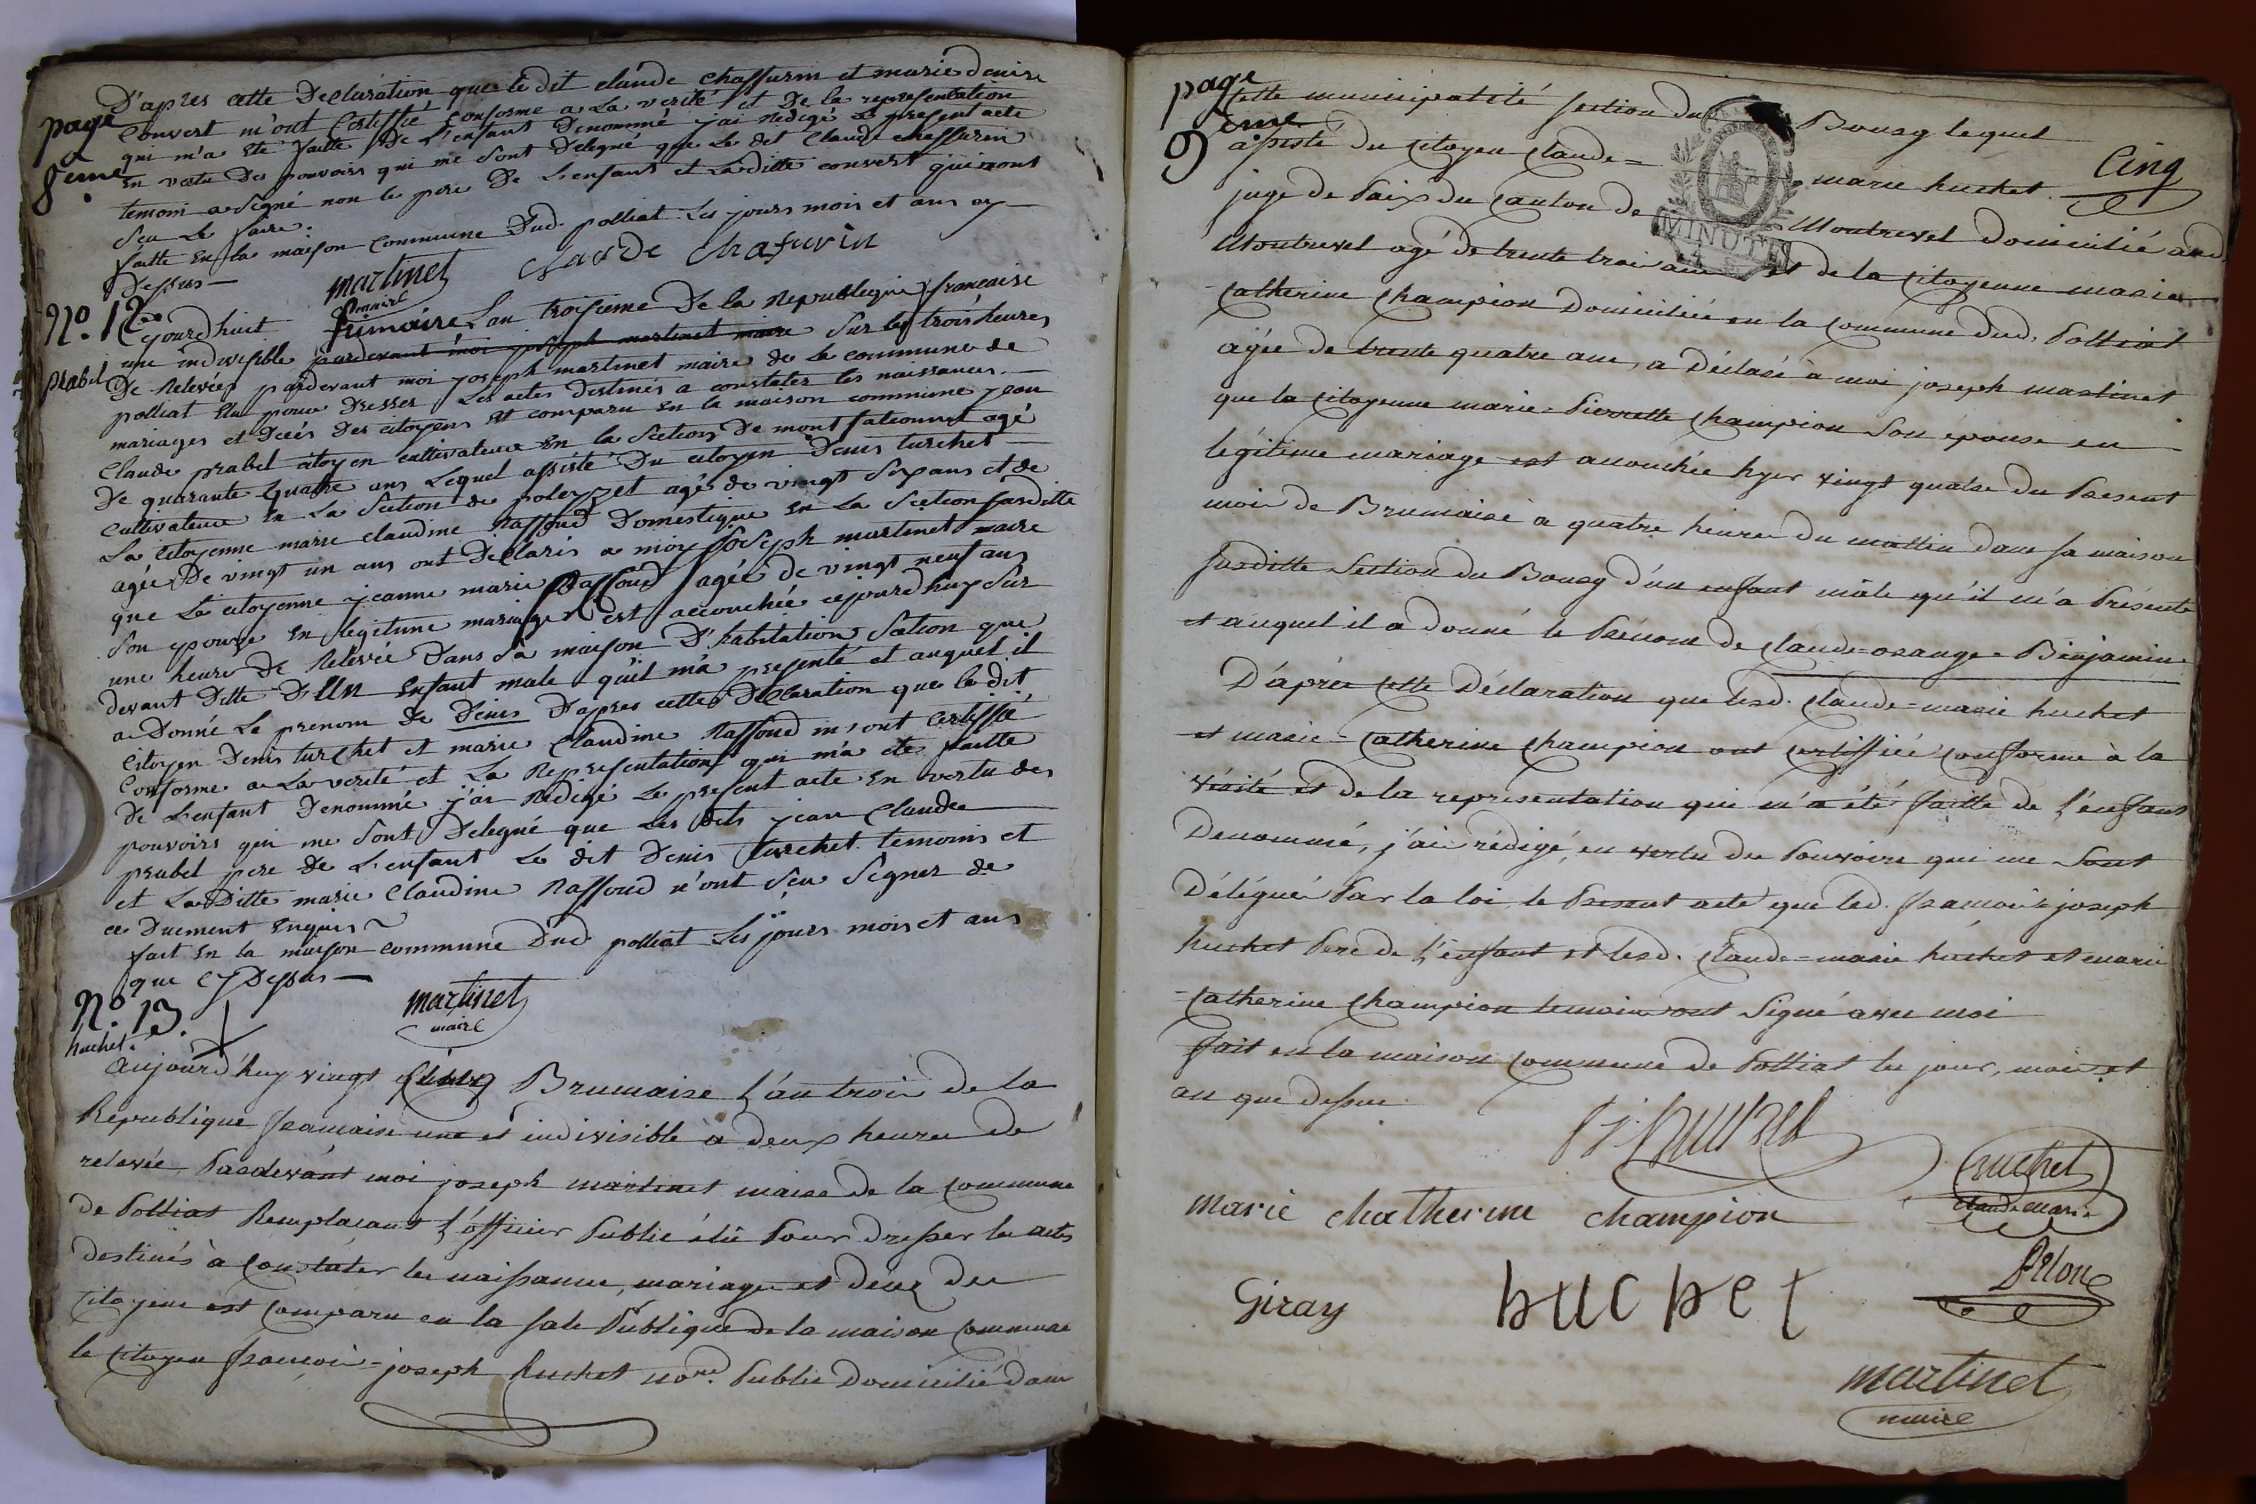 page
8eme
D'apres cette Declaration que le dit claude chaffurin et marie denise
Convert m'ont Certiffié conforme a La verité et De la representation
qui m'a ete faitte De L'enfant Denommé j'ai Redigé Le present acte
En vertu Des pouvoirs qui me sont Delegué que Le dit Claude chaffurin
temoin a signé non le pere De L'enfant et Laditte convert qui n'ont
sceu Le faire.
faitte En la maison Commune Dud. polliat Les jours mois et ans cy
Dessus —
martinet
maire
claude chafurin
No. 12
prabel
Cejourdhuit frimaire Lan troisieme De la Republique francaise
une indivisible pardevant moi joseph martinet maire Sur les trois heures
De Relevée pardevant moi joseph martinet maire de la commune de
polliat Elu pour Dresser Les actes destinés a constater les naissances
mariages et Decés Des citoyens Est comparu En la maison commune jean
Claude prabel citoyen cultivateur En la Section De montfalconnet agé
De quarante quatre ans Lequel assisté Du citoyen Denis turchet
Cultivateur En La Section de poleyzet agé de vingt six ans et de
La citoyenne marie claudine Raffoud Domestique En La Section susditte
agée De vingt un ans ont Declarés a moy joseph martinet maire
que La citoyenne jeanne marie Raffoud agée de vingt neuf ans
son epouse En legitime mariage est accouchée cejourdhuy Sur
une heure De Relevée Dans sa maison D'habitation Section que
devant Ditte D'Un Enfant male quil m'a presenté et auquel il
a Donné Le prenom De Denis D'apres cette Declaration que le dit
Citoyen Denis turchet et marie Claudine Raffoud m'ont Certiffié
Conforme a La verité et La Representation qui m'a ete faitte
De L'enfant Denommé j'ai Redigé Le present acte En vertu des
pouvoirs qui me sont Delegué que Les dits jean Claude
prabel pere De L'enfant Le dit Denis turchet temoins et
et La Ditte marie Claudine Raffoud n'ont sceu Signer de
ce Duement Enquis
fait En la maison commune Dud polliat Les jours mois et ans
que Cy Dessus —
martinet
maire
No. 13.
huchet.
Aujourd'huy vingt cinq Brumaire l'an trois de la
République francaise une et indivisible à deux heures de
relevée Pardevant moi joseph martinet maire de la commune
de Polliat Remplaçant l'officier Public élû Pour dresser les actes
destinés à constater les naissances, mariages et décez des
citoyens est comparu en la sale Publique de la maison commune
le citoyen françois-joseph huchet nore. Public Domicilié dans
page
9eme
Cinq
MINUTE
cette municipalité section du Bourg lequel
assisté du citoyen Claude-marie huchet
juge de Paix du canton de Montrevel domicilié aud.
Montrevel agé de trente trois ans et de la citoyenne marie
catherine champion domiciliée en la commune dud. Polliat
agée de trente quatre ans, a déclaré à moi joseph martinet
que la citoyenne marie-Pierrette champion son épouse en
légitime mariage est accouchée hyer vingt quatre du Present
mois de Brumaire à quatre heures du mattin dans sa maison
susditte section du Bourg d'un enfant mâle qu'il m'a Présenté
et auquel il a donné le Prénom de claude-orange-Binjamin
D'après cette Déclaration que lesd. claude-marie huchet
et marie-catherine champion ont certiffiée conforme à la
vérité et de la représentation qui m'a été faitte de l'enfant
Denommé, j'ai rédigé, en vertu des Pouvoirs qui me sont
Délégués Par la loi, le Present acte que led. françois joseph
huchet Pere de l'enfant et lesd. claude-marie huchet et marie
-catherine champion temoins ont signé avec moi
fait en la maison commune de Polliat les jour, mois et
an que dessus
huchet
claude marie
marie chatherine champion
Giray
huchet
martinet
maire